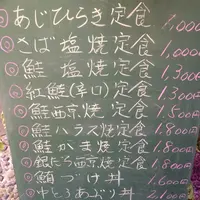 ◎あじひらき定食 1,000
◎さば塩焼定食 1,000
◎鮭塩焼定食 1,300
◎紅鮭(辛口)定食 1,300
◎鮭西京焼定食 1,500
◎鮭ハラス焼定食 1,800
◎鮭かま焼定食 1,800
◎銀だら西京焼定食 2,000
◎鮪づけ丼 1,600
◎中とろあぶり丼 2,100